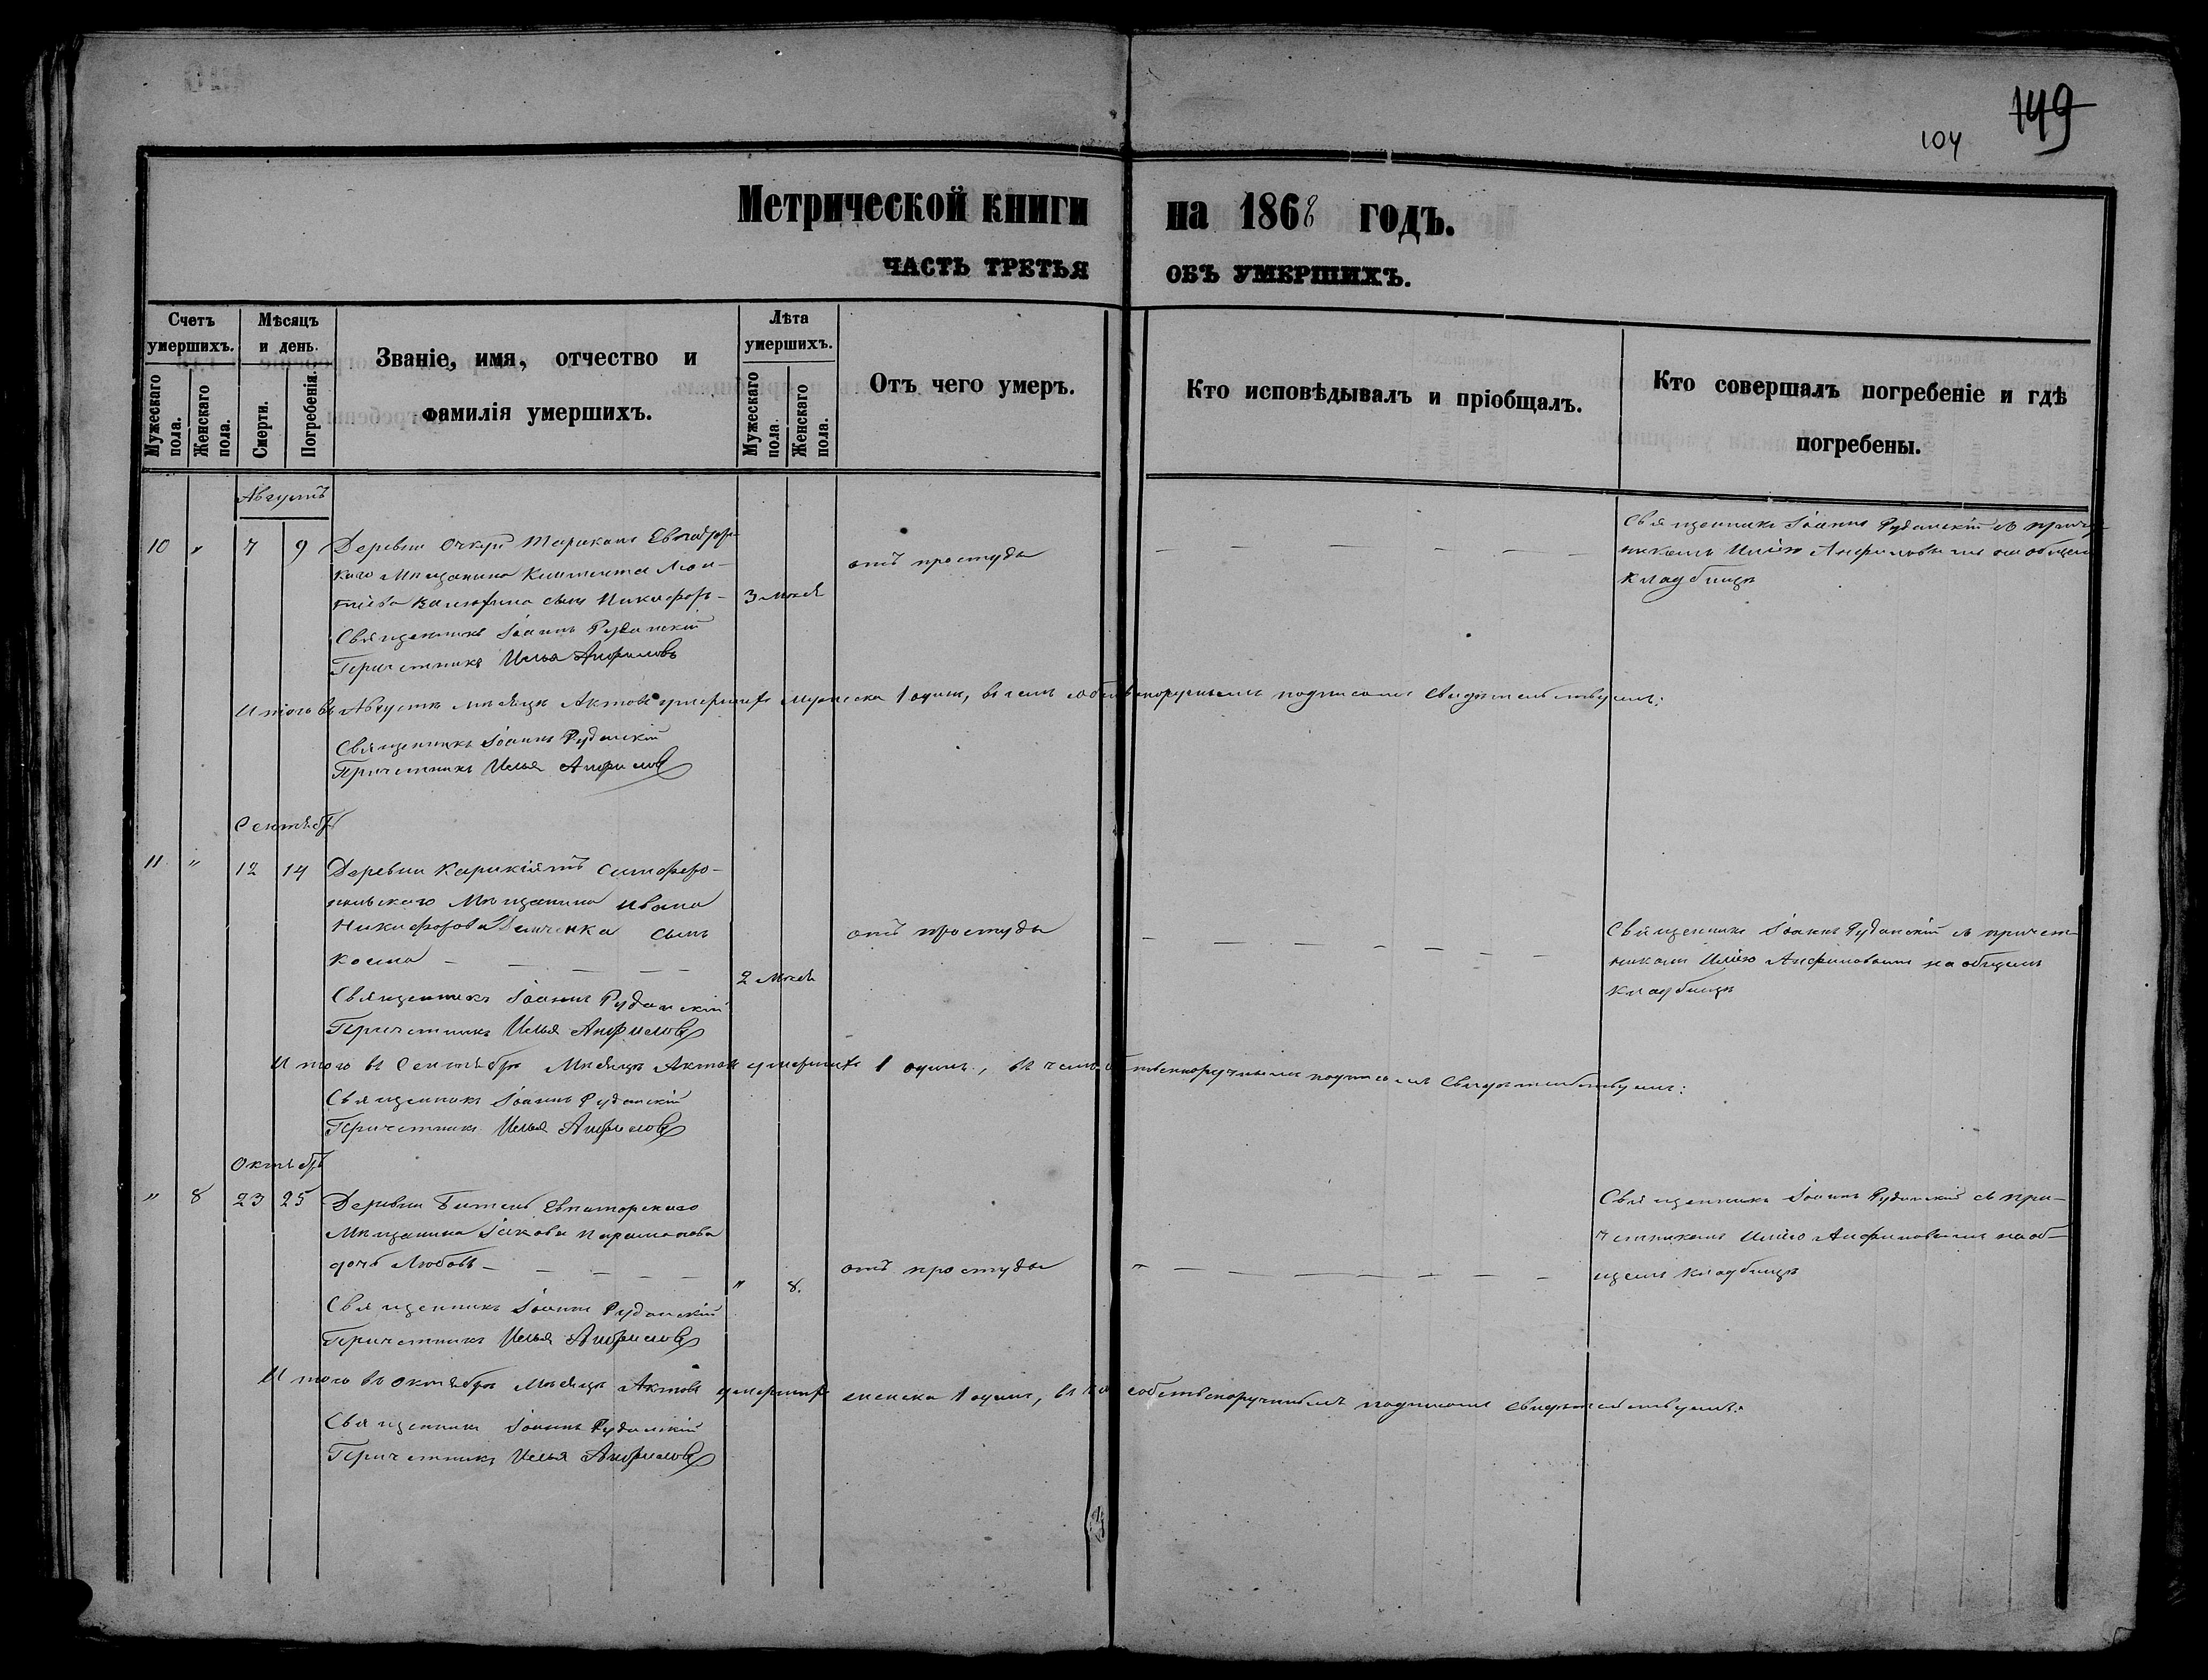 149
104
Метрической книги на 1868 годъ.
ЧАСТЬ ТРЕТЬЯ ОБЪ УМЕРШИХЪ.
Счетъ умершихъ.
Мужескаго пола.
Женскаго пола.
Мѣсяцъ и день.
Смерти.
Погребенія.
Званіе, имя, отчество и фамилія умершихъ.
Лѣта умершихъ.
Мужескаго пола.
Женскаго пола.
Отъ чего умеръ.
Кто исповѣдывалъ и пріобщалъ.
Кто совершалъ погребеніе и гдѣ погребены.
Августъ
10 " 7 9 Деревни Очкуи
Мѣщанина
сынъ Никифоръ 3 мѣся
отъ простуды
Священникъ Іоаннъ Руданскій съ причет-
никомъ Ильею Анфиловымъ на общемъ
кладбищѣ
Священникъ Іоаннъ Руданскій
Причетникъ Илья Анфиловъ
Итого въ Августѣ мѣсяцѣ Актовъ умершихъ мужеска 1 одинъ, въ чемъ собственоручнымъ подписомъ свидѣтельствуемъ:
Священникъ Іоаннъ Руданскій
Причетникъ Илья Анфиловъ
Сентябрь
11 " 12 14 Деревни Карикіятъ Симферо-
польскаго Мѣщанина Ивана
Никифорова Демченка сынъ
Косма 2 мѣся
отъ простуды
Священникъ Іоаннъ Руданскій съ причет-
никомъ Ильею Анфиловымъ на общемъ
кладбищѣ
Священникъ Іоаннъ Руданскій
Причетникъ Илья Анфиловъ
Итого въ Сентябрѣ Мѣсяцѣ Актовъ умершихъ 1 одинъ, въ чемъ собственноручнымъ подписомъ свидѣтельствуемъ:
Священникъ Іоаннъ Руданскій
Причетникъ Илья Анфиловъ
Октябрь
" 8 23 25 Деревни Битень Евпаторскаго
Мѣщанина Іакова Парамонова
дочь Любовь " 8.
отъ простуды
Священникъ Іоаннъ Руданскій съ при-
четникомъ Ильею Анфиловымъ на об-
щемъ кладбищѣ
Священникъ Іоаннъ Руданскій
Причетникъ Илья Анфиловъ
Итого въ Октябрѣ Мѣсяцѣ Актовъ умершихъ женска 1 одинъ, въ чемъ собственоручнымъ подписомъ свидѣтельствуемъ:
Священникъ Іоаннъ Руданскій
Причетникъ Илья Анфиловъ